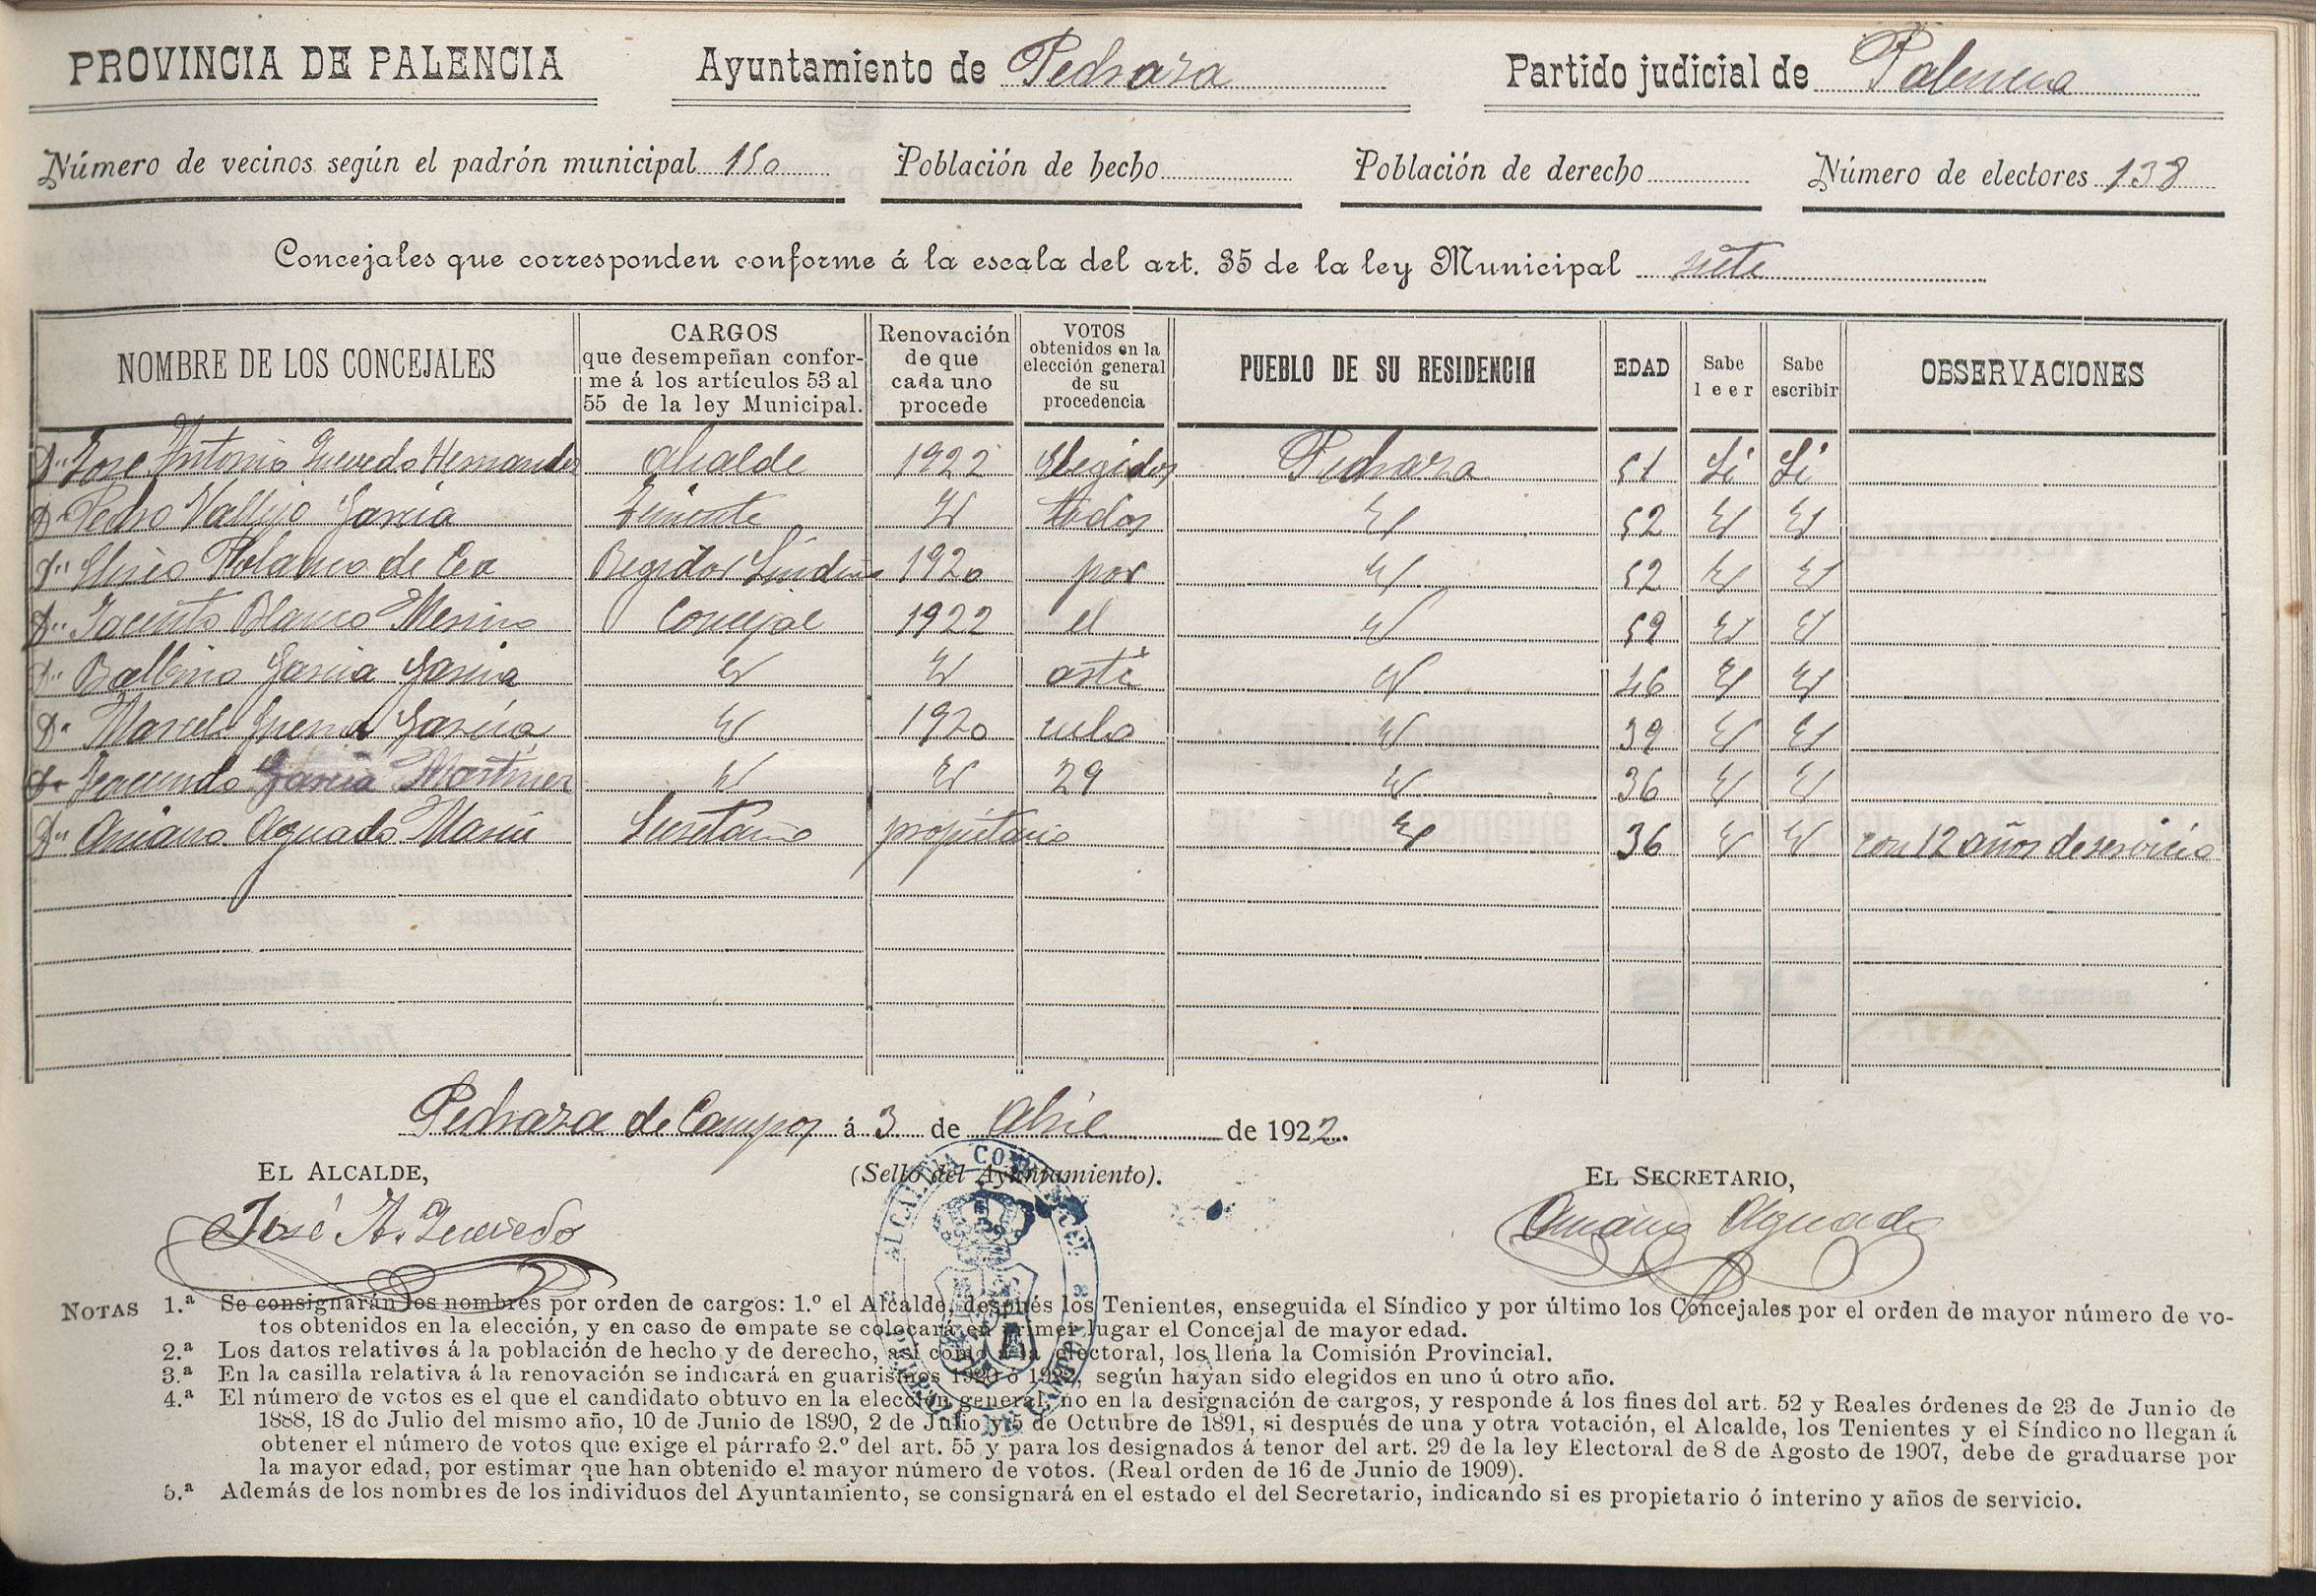 PROVINCIA DE PALENCIA Ayuntamiento de Pedraza Partido judicial de Palencia
Número de vecinos según el padrón municipal 150 Población de hecho Población de derecho Número de electores 138
Concejales que corresponden conforme á la escala del art. 35 de la ley Municipal siete
NOMBRE DE LOS CONCEJALES
CARGOS
que desempeñan confor-
me á los artículos 53 al
55 de la ley Municipal.
Renovación
de que
cada uno
procede
VOTOS
obtenidos en la
elección general
de su
procedencia
PUEBLO DE SU RESIDENCIA
EDAD
Sabe
leer
Sabe
escribir
OBSERVACIONES
Dn Jose Antonio Quevedo Hernandez Alcalde 1922 Elegidos Pedraza 51 Si Si
Dn Pedro Vallejo Garcia Teniente Id todos Id 52 Id Id
Dn Polanco de Cea Regidor Sindico 1920 por Id 52 Id Id
Dn Jacinto Blanco Merino Concejal 1922 el Id 59 Id Id
Dn Balbino Garcia Garcia Id Id arti Id 46 Id Id
Dn Marcelo Guerra Garcia Id 1920 culo Id 39 Id Id
Dn Facundo Garcia Martinez Id Id 29 Id 36 Id Id
Dn Amiano Aguado Secretario propietario Id 36 Id Id con 12 años de servicio
Pedraza de Campos á 3 de Abril de 1922.
EL ALCALDE, (Sello del Ayuntamiento). EL SECRETARIO,
José A. Quevedo Amiano Aguado
ALCALDIA CONSTITUCIONAL
NOTAS 1.ª Se consignarán los nombres por orden de cargos: 1.º el Alcalde, después los Tenientes, enseguida el Síndico y por último los Concejales por el orden de mayor número de vo-
tos obtenidos en la elección, y en caso de empate se colocará en primer lugar el Concejal de mayor edad.
2.ª Los datos relativos á la población de hecho y de derecho, así como á la electoral, los llena la Comisión Provincial.
3.ª En la casilla relativa á la renovación se indicará en guarismos 1920 ó 1922, según hayan sido elegidos en uno ú otro año.
4.ª El número de votos es el que el candidato obtuvo en la elección general, no en la designación de cargos, y responde á los fines del art. 52 y Reales órdenes de 23 de Junio de
1888, 18 de Julio del mismo año, 10 de Junio de 1890, 2 de Julio y 5 de Octubre de 1891, si después de una y otra votación, el Alcalde, los Tenientes y el Síndico no llegan á
obtener el número de votos que exige el párrafo 2.º del art. 55 y para los designados á tenor del art. 29 de la ley Electoral de 8 de Agosto de 1907, debe de graduarse por
la mayor edad, por estimar que han obtenido el mayor número de votos. (Real orden de 16 de Junio de 1909).
5.ª Además de los nombres de los individuos del Ayuntamiento, se consignará en el estado el del Secretario, indicando si es propietario ó interino y años de servicio.